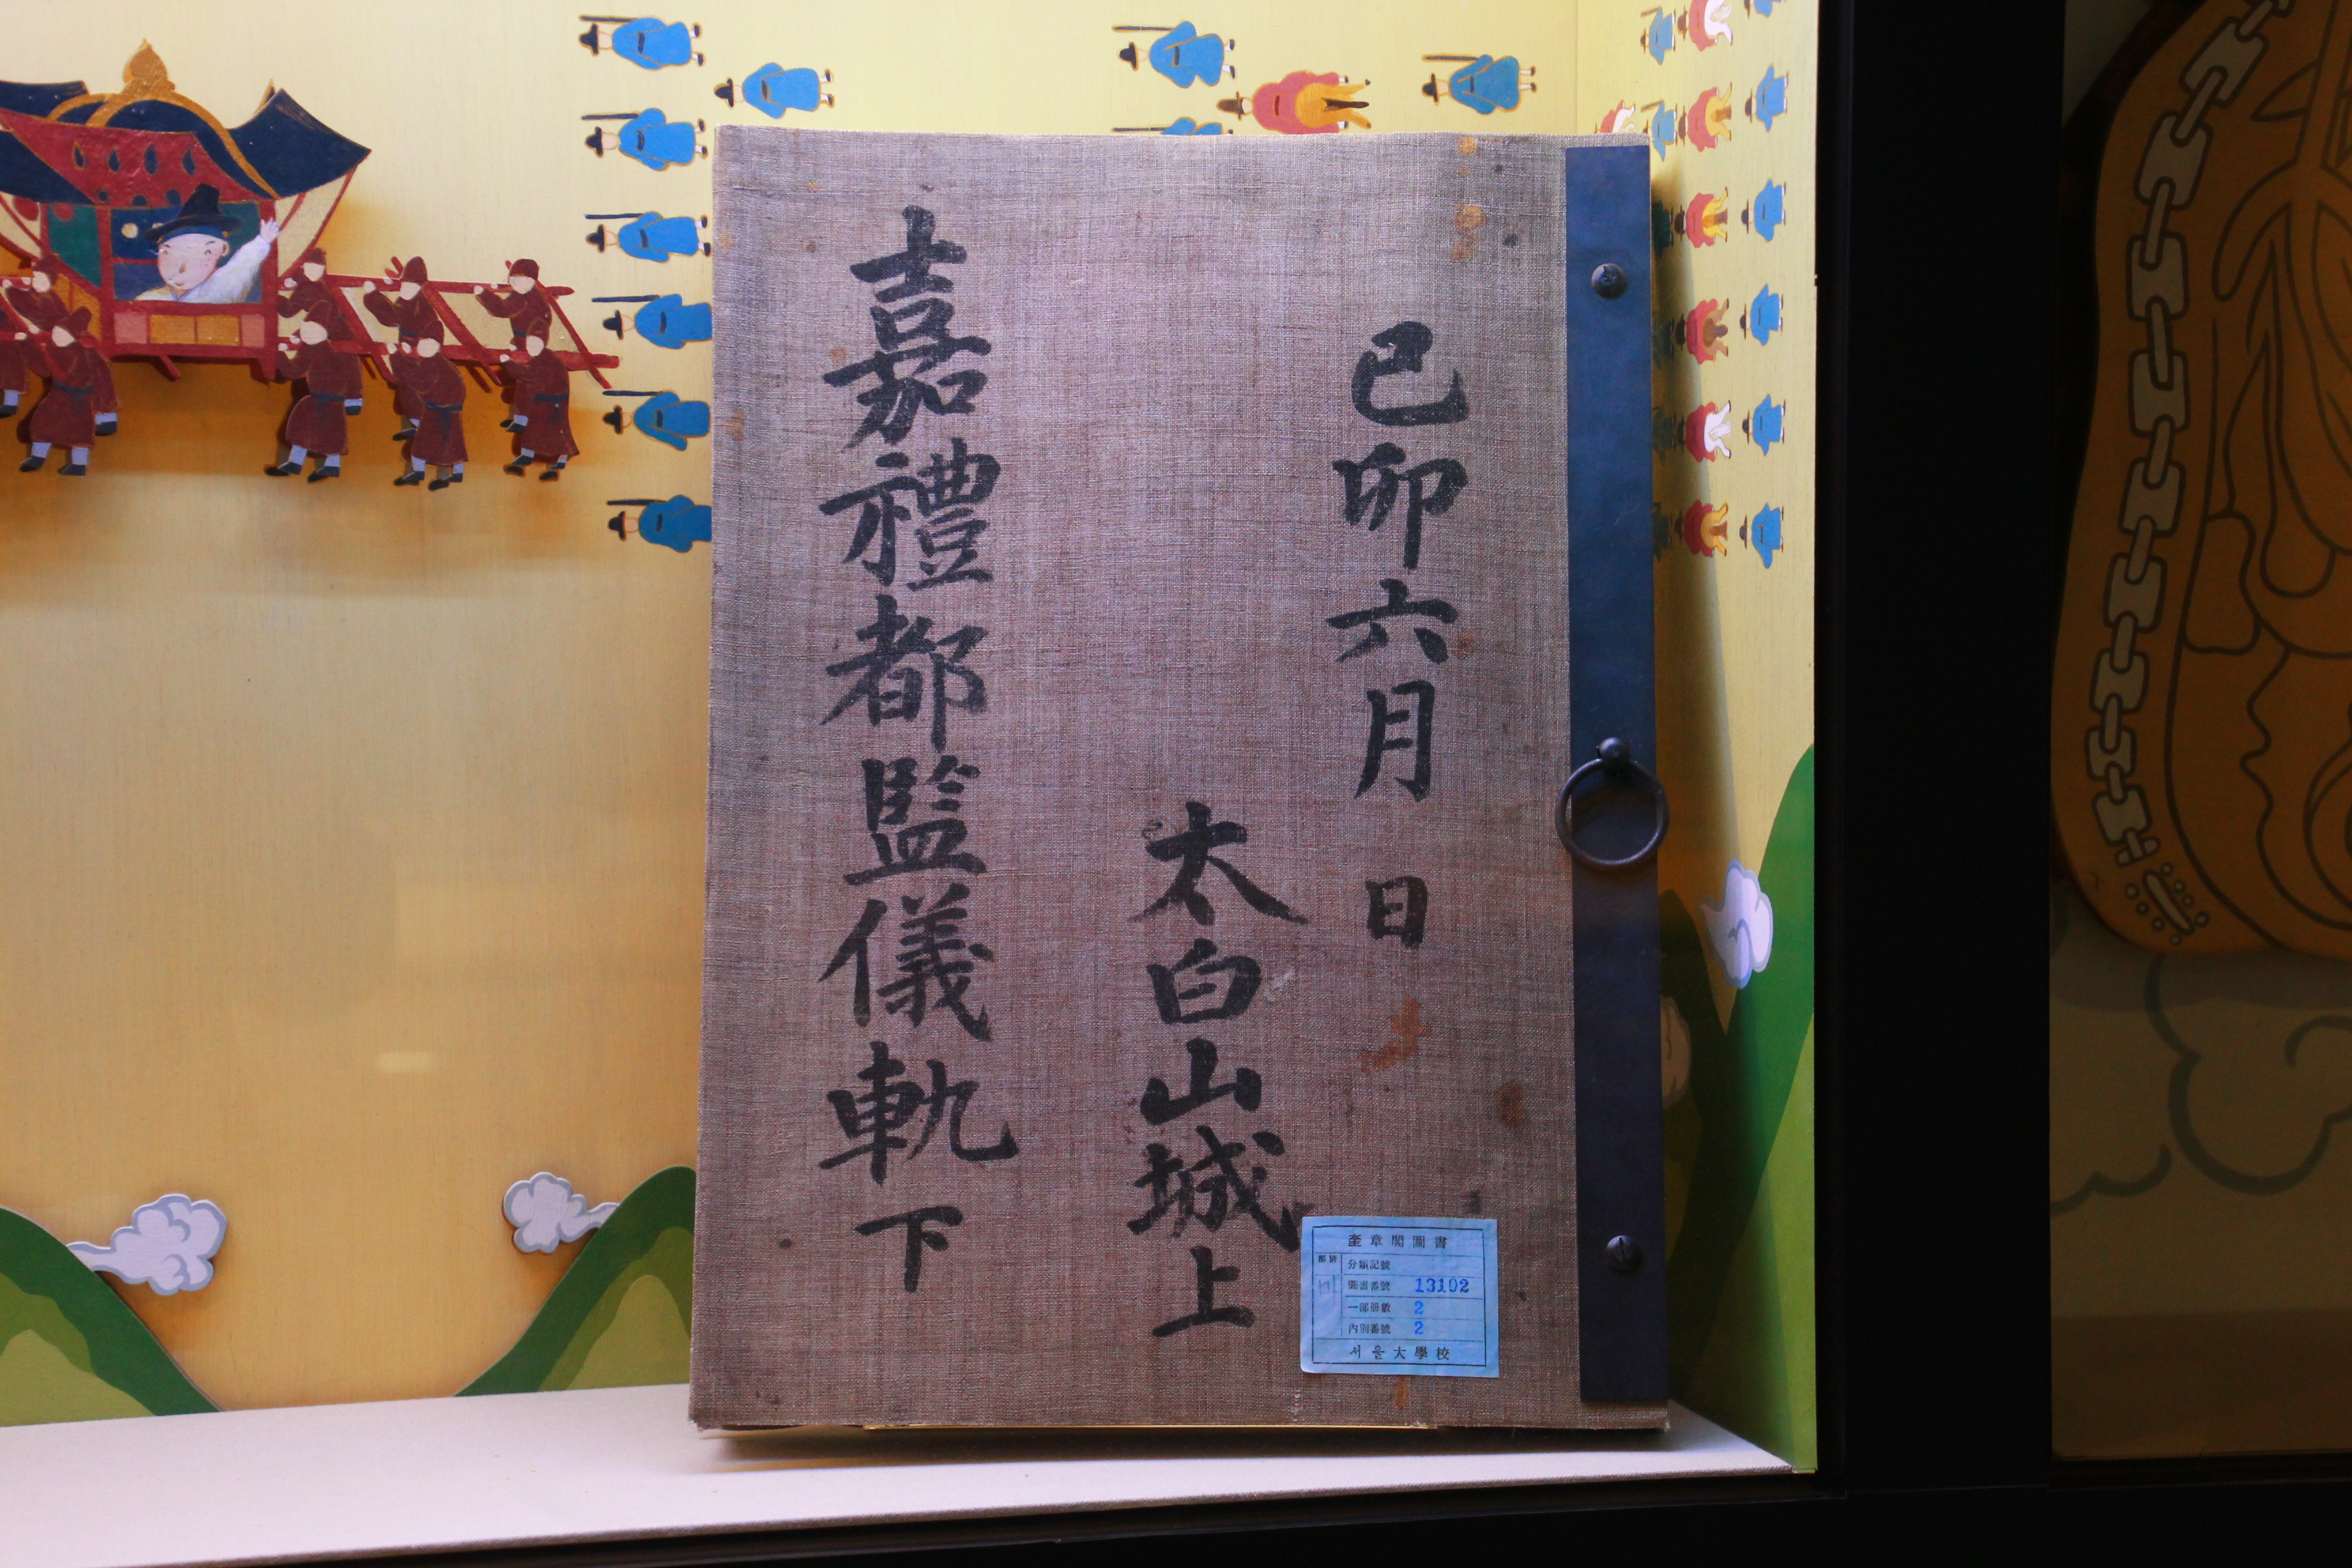 己卯六月 日
太白山城上
嘉禮都監儀軌 下
奎章閣圖書
部別
分類記號
圖書番號 13102
一部册數 2
內別番號 2
서울大學校